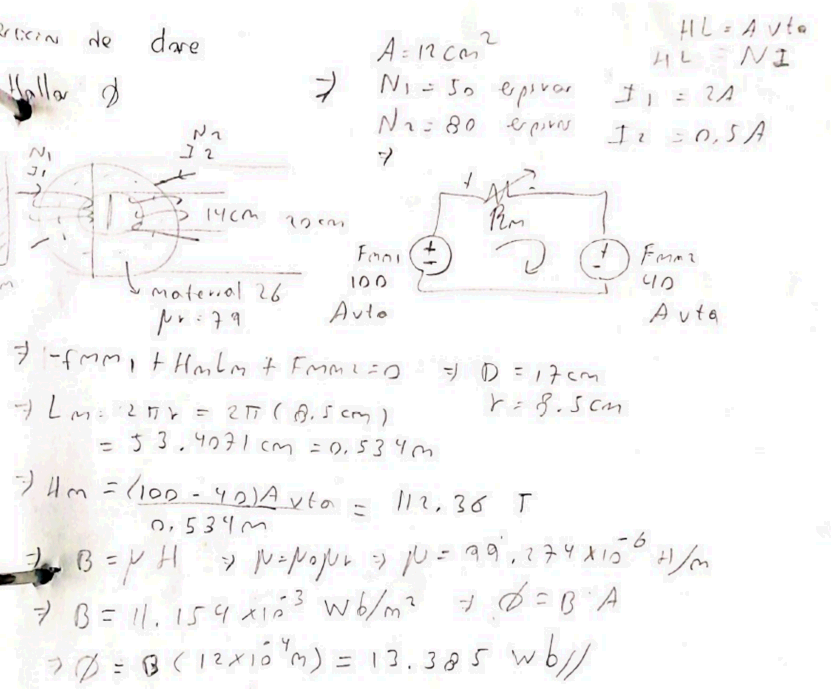 de clase
Hallar ϕ
⇒ A = 12 cm²
N1 = 50 espiras I1 = 2A
N2 = 80 espiras I2 = 0,5A
HL = A vta
HL = NI
⇒
N1
I1
N2
I2
14cm 20cm
material 26
μr = 79
+ Rm -
Fmm1
100
Avta
Fmm2
40
A vta
⇒ -fmm1 + HmLm + Fmm2 = 0 ⇒ D = 17cm
r = 8.5cm
⇒ Lm = 2πr = 2π(8.5cm)
= 53.4071 cm = 0.534m
⇒ Hm = (100 - 40)A vta / 0.534m = 112.36 T
⇒ B = μH ⇒ μ = μ0μr ⇒ μ = 99.274 x10⁻⁶ H/m
⇒ B = 11.154 x10⁻³ Wb/m² ⇒ ϕ = B·A
⇒ ϕ = B (12x10⁻⁴m) = 13.385 wb//